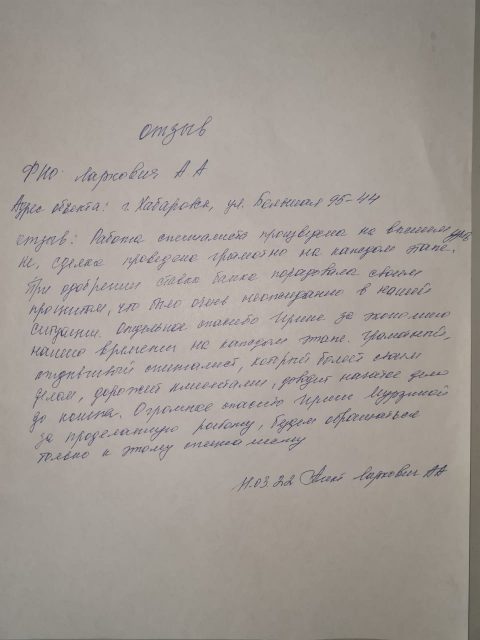 отзыв
ФИО: Ларкович А А
Адрес объекта: г. Хабаровск, ул. Большая 95-44
отзыв: Работа специалиста произведена на высшем уров
не, сделка проведена грамотно на каждом этапе.
При одобрении ставка банка порадовала своим
процентом, что было очень неожиданно в нашей
ситуации. Отдельное спасибо Ирине за экономию
нашего времени на каждом этапе. Грамотный,
отзывчивый специалист, который болеет своим
делом, дорожит клиентами, доводит начатое дело
до конца. Огромное спасибо Ирине
за проделанную работу, будем обращаться
только к этому специалисту
11.03.22 Ларкович АА